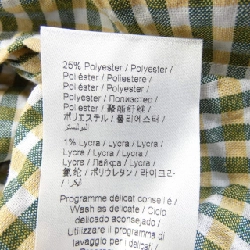 25% Polyester / Polyester /
Poliéster / Poliestere /
Poliéster / Polyester /
Polyester / Полиэстер /
Poliester / 聚酯纤维 /
ポリエステル / 폴리에스터 /
بوليستر
1% Lycra / Lycra / Lycra /
Lycra / Lycra / Lycra /
Lycra / Лайкра / Lycra /
氨纶 / ポリウレタン / 라이크라 /
ليكرا
Programme délicat conseillé /
Wash as delicate / Ciclo
delicado aconsejado /
Utilizzare il programma di
lavaggio per i delicati